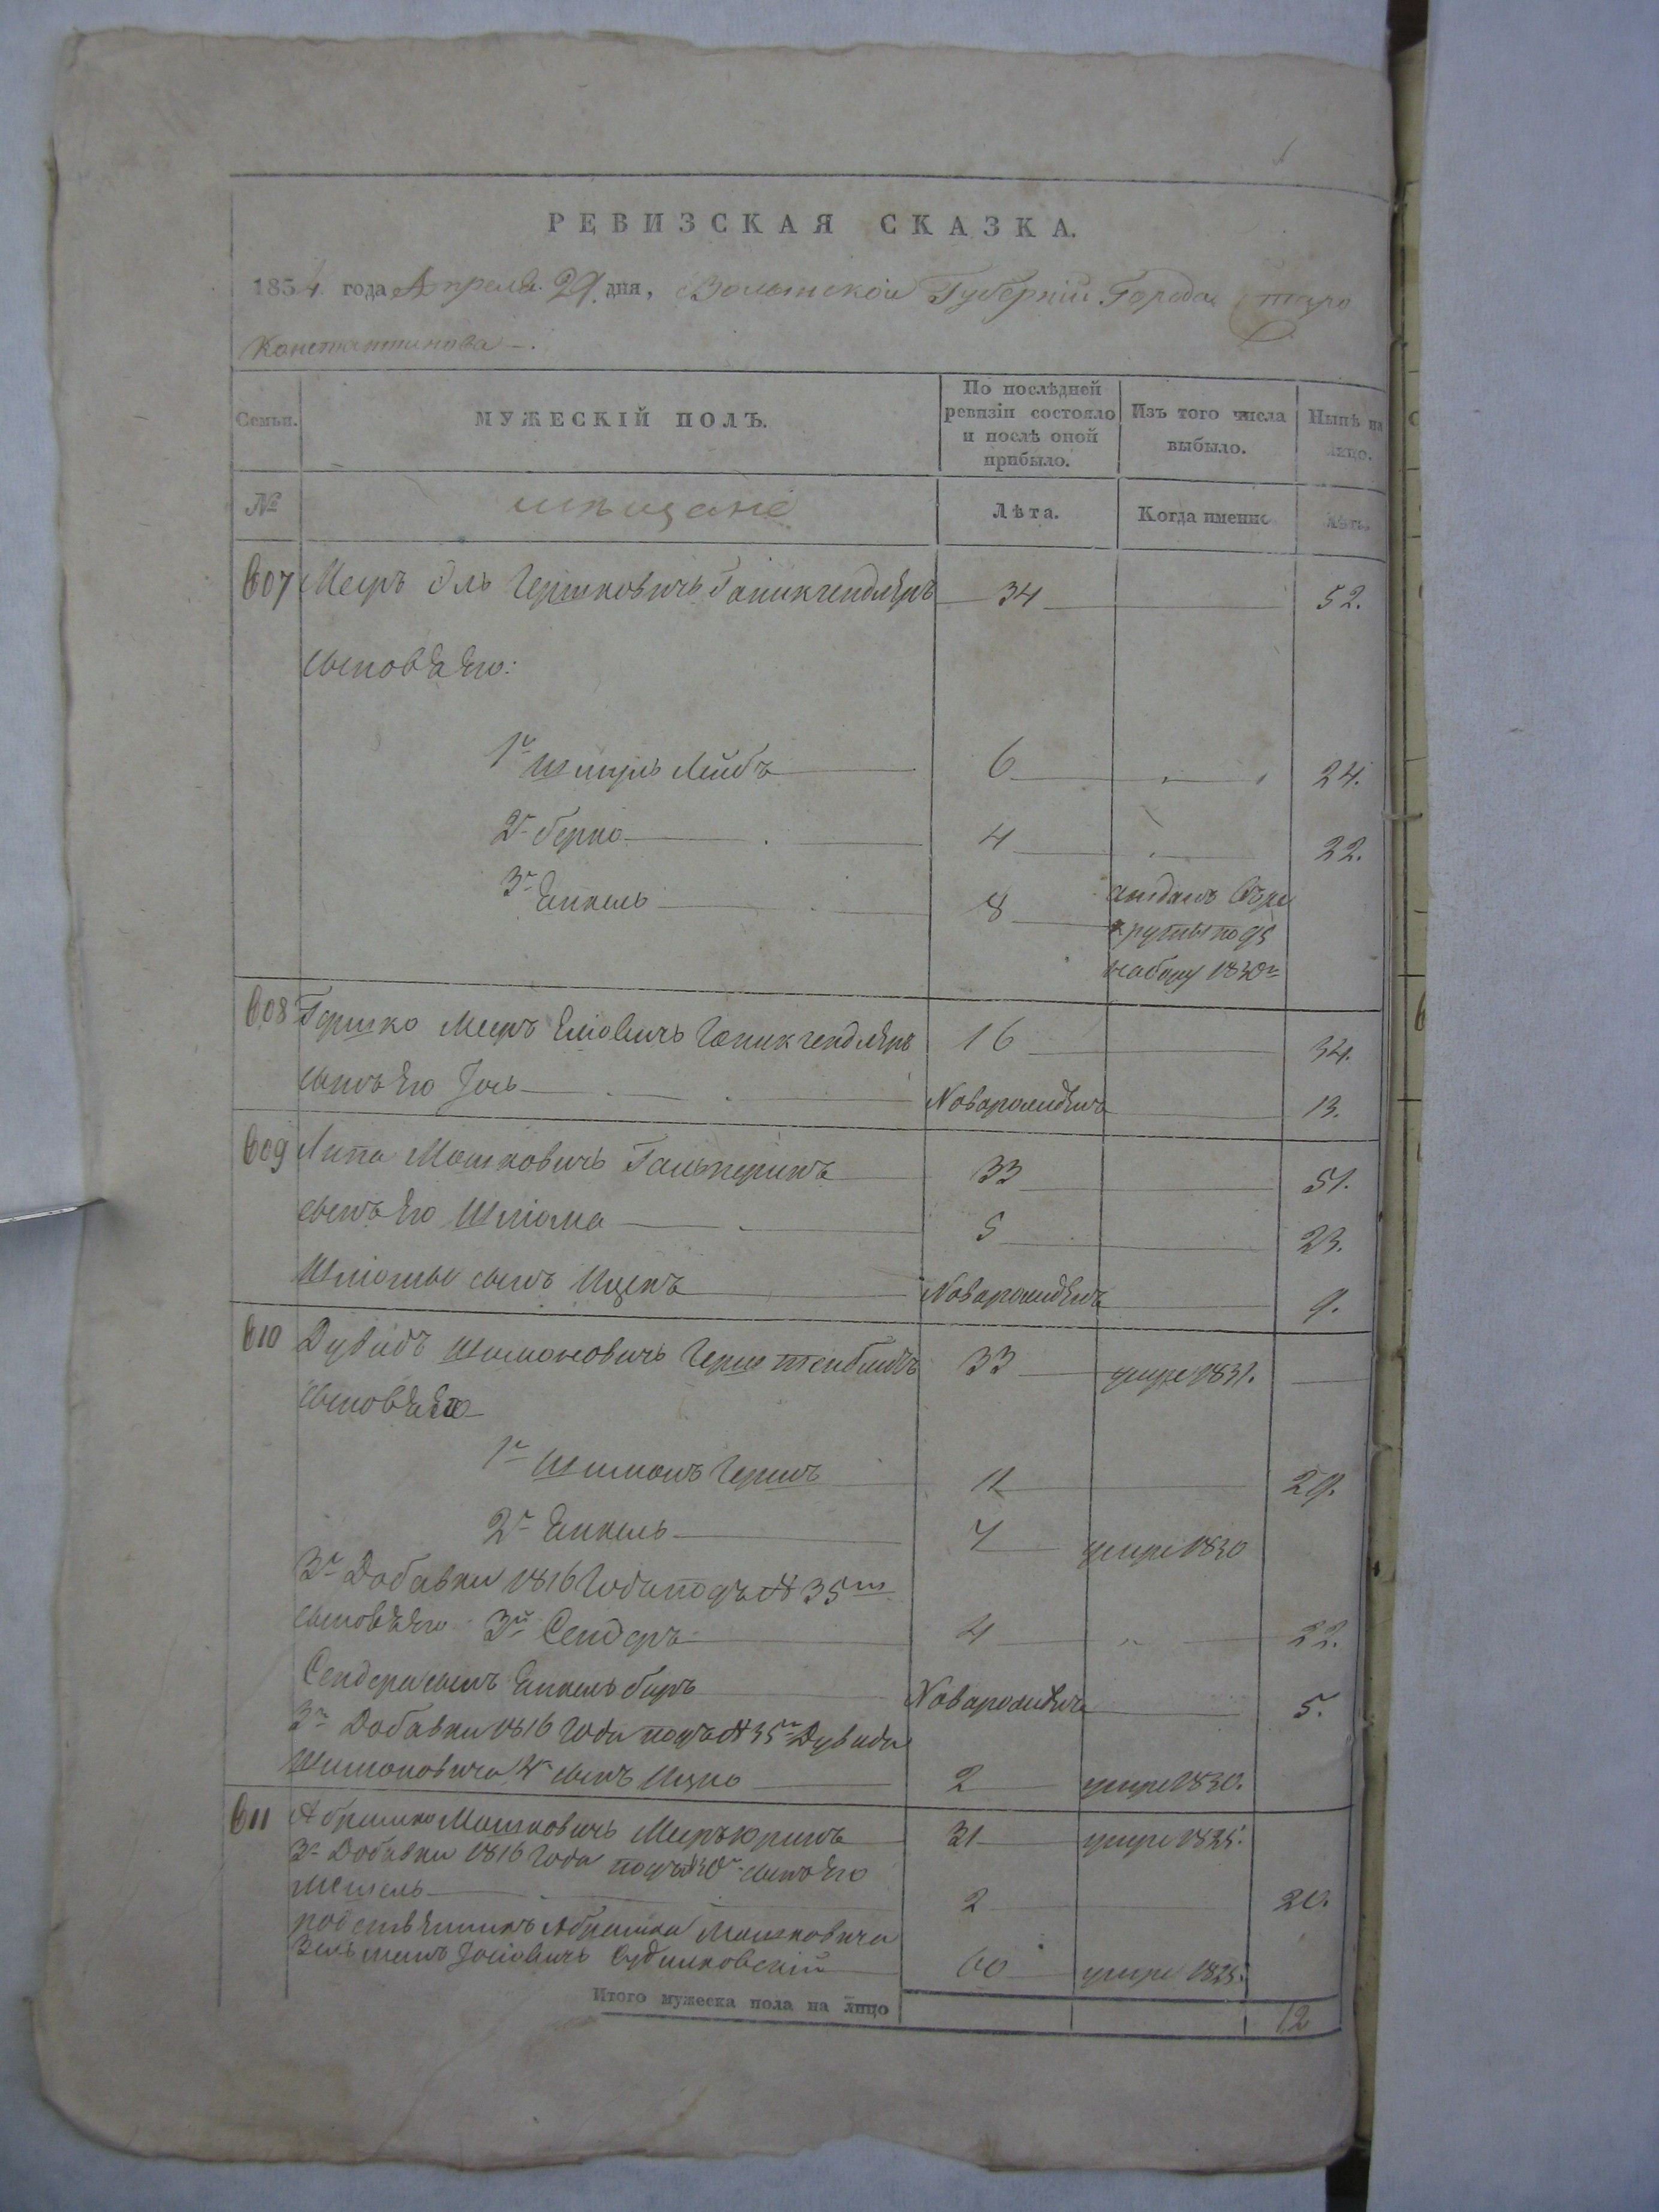 РЕВИЗСКАЯ СКАЗКА.
1834 года Апреля 29 дня, Волынской Губерніи Города Старо
Константинова
Семьи. МУЖЕСКІЙ ПОЛЪ. По послѣдней ревизіи состояло и послѣ оной прибыло. Изъ того числа выбыло. Нынѣ на лицо.
№ мѣщане Лѣта. Когда именно Лѣта.
607 Меиръ Эль Гершковичъ 34 52.
сыновья Его:
1й Шмуль Лейбъ 6 24.
2й Берко 4 22.
3й Янкель 8 отданъ въ ре
круты по 95
набору 1830г
608 Гершко Меиръ 16 34.
сынъ Его Іось Новорожденъ 13.
609 Липа Мошковичъ Гальперинъ 33 51.
сынъ Его Шліома 5 23.
Шліомы сынъ Ицекъ Новорожденъ 9.
610 Дувидъ Шимоновичъ 33 умре 1831.
сыновья Его
1й Шимонъ Гершъ 11 29.
2й Янкель 7 умре 1830
Зъ Добавки 1816 Года подъ № 35м
сыновья Его 3й Сендеръ 4 22.
Сендера сынъ Янкель Беръ Новорожденъ 5.
Зъ Добавки 1816 Года подъ № 35м Дувида
Шимоновича 4й сынъ Ицко 2 умре 1830.
611 Абрамко Мошковичъ 31 умре 1825.
Зъ Добавки 1816 Года подъ сынъ Его
2 20.
родственникъ Абрамка Мошковича
Зельманъ Іосіовичъ 60 умре 1825.
Итого мужеска пола на лицо 12